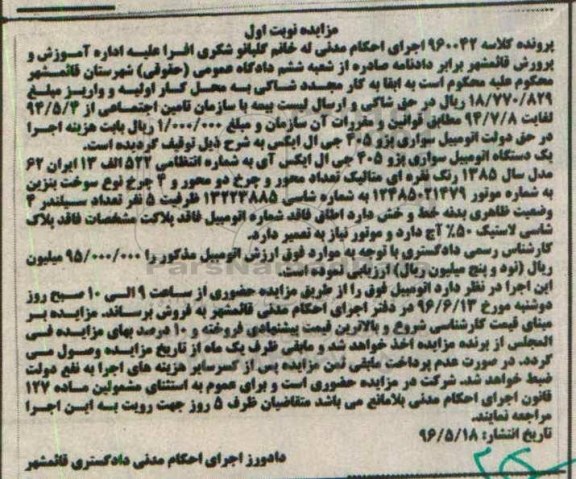 مزایده نوبت اول
پرونده کلاسه ۹۶۰۰۴۲ اجرای احکام مدنی له خانم گلبانو شکری افرا علیه اداره آموزش و
پرورش قائمشهر برابر دادنامه صادره از شعبه ششم دادگاه عمومی (حقوقی) شهرستان قائمشهر
محکوم علیه محکوم است به ابقا به کار مجدد شاکی به محل کار اولیه و واریز مبلغ
۱۸/۷۷۰/۸۲۹ ریال در حق شاکی و ارسال لیست بیمه با سازمان تامین اجتماعی از ۹۴/۵/۴
لغایت ۹۴/۷/۸ مطابق قوانین و مقررات آن سازمان و مبلغ ۱/۰۰۰/۰۰۰ ریال بابت هزینه اجرا
در حق دولت اتومبیل سواری پژو ۴۰۵ جی ال ایکس به شرح ذیل توقیف گردیده است.
یک دستگاه اتومبیل سواری پژو ۴۰۵ جی ال ایکس آی به شماره انتظامی ۵۲۲ الف ۱۳ ایران ۶۲
مدل سال ۱۳۸۵ رنگ نقره ای متالیک تعداد محور و چرخ دو محور و ۴ چرخ نوع سوخت بنزین
به شماره موتور ۱۲۴۸۵۰۲۱۴۷۹ به شماره شاسی ۱۳۲۲۳۸۸۵ ظرفیت ۵ نفر تعداد سیلندر ۴
وضعیت ظاهری بدنه خط و خش دارد اطاق فاقد شماره اتومبیل فاقد پلاکت مشخصات فاقد پلاک
شاسی لاستیک ۵۰٪ آج دارد و موتور نیاز به تعمیر دارد.
کارشناس رسمی دادگستری با توجه به موارد فوق ارزش اتومبیل مذکور را ۹۵/۰۰۰/۰۰۰ میلیون
ریال (نود و پنج میلیون ریال) ارزیابی نموده است.
این اجرا در نظر دارد اتومبیل فوق را از طریق مزایده حضوری از ساعت ۹ الی ۱۰ صبح روز
دوشنبه مورخ ۹۶/۶/۱۳ در دفتر اجرای احکام مدنی قائمشهر به فروش برساند. مزایده بر
مبنای قیمت کارشناسی شروع و بالاترین قیمت پیشنهادی فروخته و ۱۰ درصد بهای مزایده فی
المجلس از برنده مزایده اخذ خواهد شد و مابقی ظرف یک ماه از تاریخ مزایده وصول می
گردد. در صورت عدم پرداخت مابقی ثمن مزایده پس از کسر سایر هزینه های اجرا به نفع دولت
ضبط خواهد شد. شرکت در مزایده حضوری است و برای عموم به استثنای مشمولین ماده ۱۲۷
قانون اجرای احکام مدنی بلامانع می باشد متقاضیان ظرف ۵ روز جهت رویت به این اجرا
مراجعه نمایند.
تاریخ انتشار: ۹۶/۵/۱۸
دادورز اجرای احکام مدنی دادگستری قائمشهر